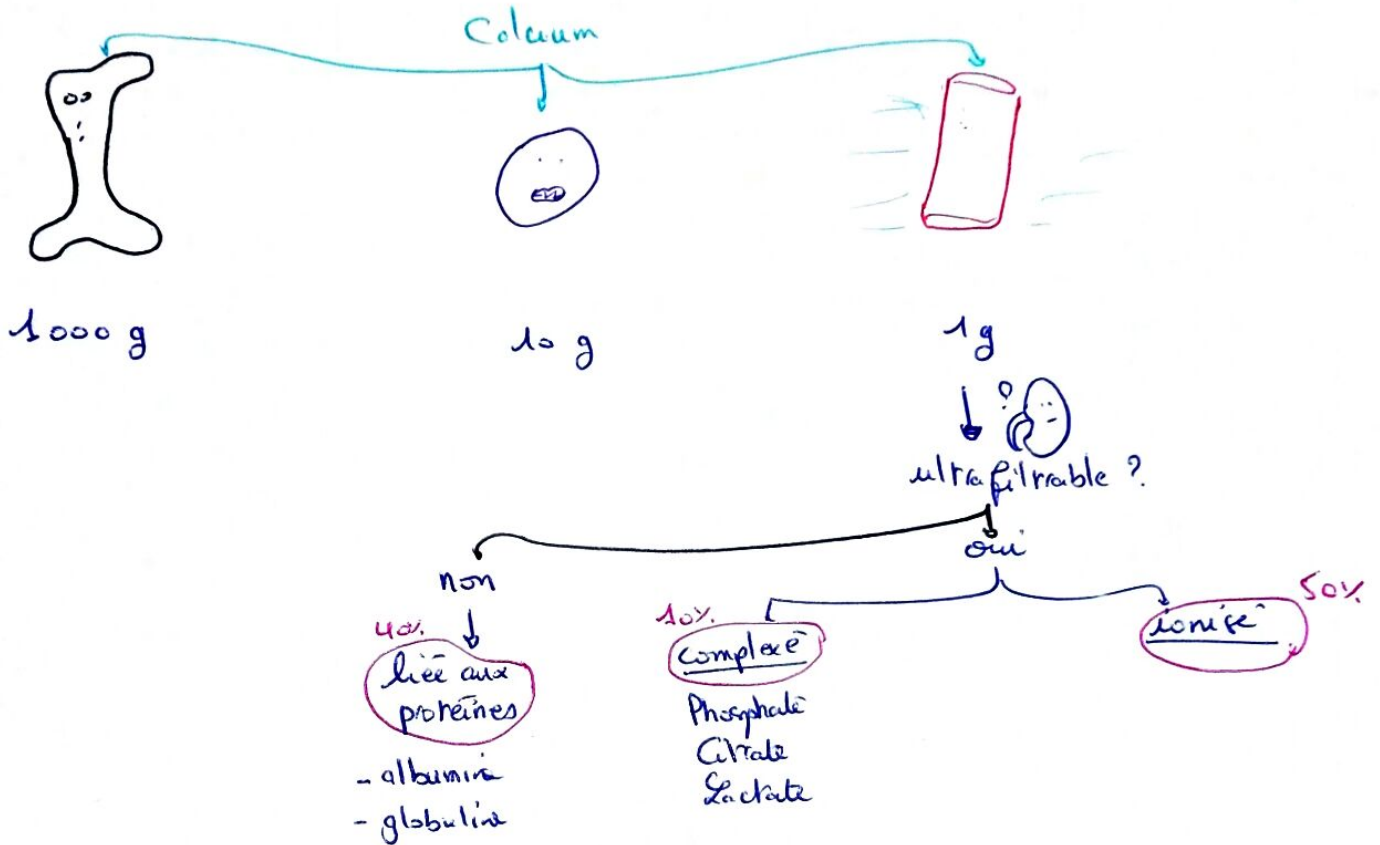 Calcium
1000 g
10 g
1g
?
ultrafiltrable ?
non
oui
40%
liée aux
protéines
- albumine
- globuline
10%
complexé
Phosphate
Citrate
Lactate
50%
ionisé